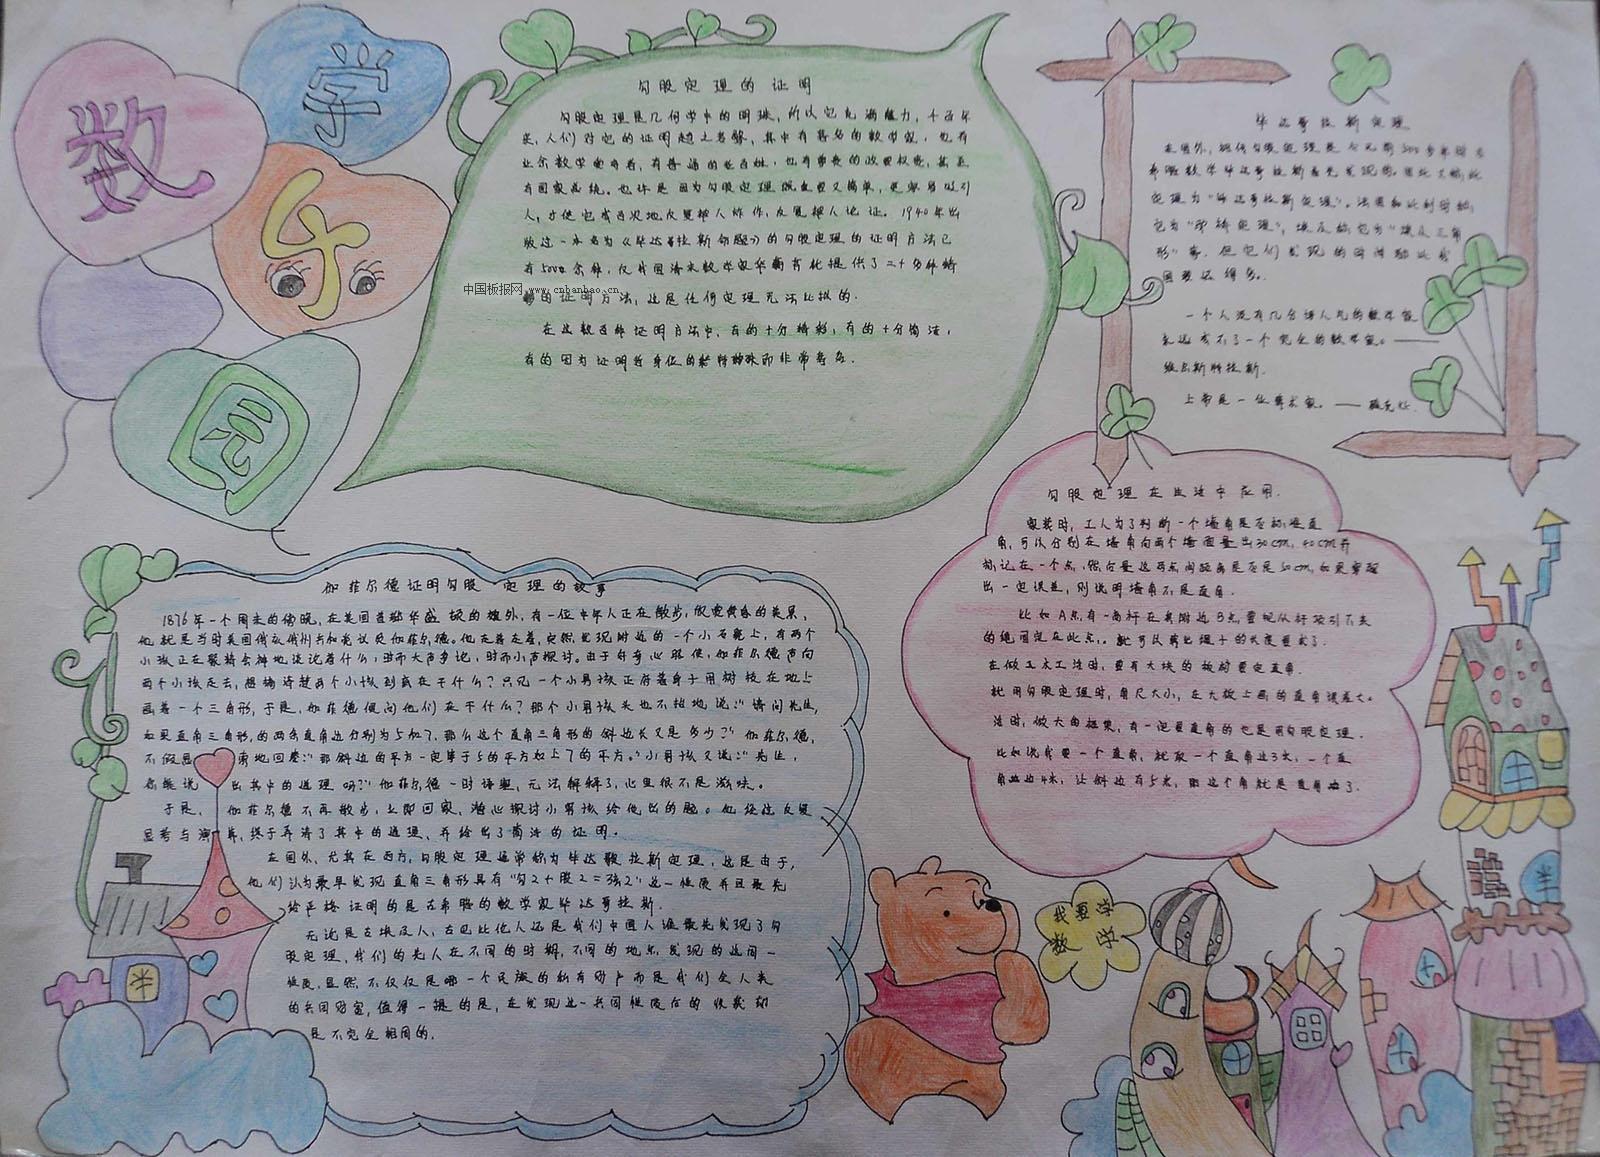 数
学
乐
园
勾股定理的证明
勾股定理是几何学中的明珠，所以它充满魅力，千百年
来，人们对它的证明趋之若鹜，其中有著名的数学家，也有
业余数学爱好者，有普通的老百姓，也有尊贵的政要权贵，甚至
有国家总统。也许是因为勾股定理既重要又简单，更容易吸引
人，才使它成百次地反复被人炒作，反复被人论证。1940年出
版过一本名为《毕达哥拉斯命题》的勾股定理的证明方法已
有500余种，仅我国清末数学家华蘅芳就提供了二十多种精
的证明方法，这是任何定理无法比拟的.
在这数百种证明方法中，有的十分精彩，有的十分简洁，
有的因为证明者身份的特殊而非常著名.
中国板报网 www.cnbanbao.cn
毕达哥拉斯定理
一个人没有几分诗人气的数学家
永远成不了一个完全的数学家。——
维尔斯特拉斯.
上帝是一位算术家。——雅克比.
勾股定理在生活中应用.
家装时，工人为了判断一个墙角是否标准直
角，可以分别在墙角向两个墙面量出30cm，40cm并
标记在一个点，然后量这两点间距离是否是50cm，如果超
出一定误差，则说明墙角不是直角.
比如A点有一高杆在其附近B点要把从杆顶引下来
的绳固定在此点.
在做工木工活时，要有大块的板材要定直角.
就用勾股定理时，角尺太小，在大板上画的直角误差大。
活时，做大的框架，有一定要直角的也是用勾股定理.
比如说我要一个直角，就取一个直角边3米，一个直
角边4米，让斜边有5米，那这个角就是直角了.
伽菲尔德证明勾股定理的故事
1876年一个周末的傍晚，在美国首都华盛顿的郊外，有一位中年人正在散步，欣赏黄昏的美景，
他就是当时美国俄亥俄州共和党议员伽菲尔德。他走着走着，突然发现附近的一个小石凳上，有两个
小孩正在聚精会神地谈论着什么，时而大声争论，时而小声探讨。由于好奇心驱使，伽菲尔德声向
两个小孩走去，想搞清楚两个小孩到底在干什么？只见一个小男孩正俯着身子用树枝在地上
画着一个三角形，于是，伽菲德便问他们在干什么？那个小男孩头也不抬地说：“请问先生，
如果直角三角形，的两条直角边分别为5和7，那么这个直角三角形的斜边长又是多少？”伽菲尔德，
不假思索地回答：“那斜边的平方一定等于5的平方加上7的平方。”小男孩又说：“先生，
你能说出其中的道理吗？”伽菲尔德一时语塞，无法解释了，心里很不是滋味。
于是，伽菲尔德不再散步，立即回家，潜心探讨小男孩给他出的题。他经过反复
思考与演算，终于弄清了其中的道理，并给出了简洁的证明。
在国外，尤其在西方，勾股定理通常称为毕达歌拉斯定理，这是由于，
他们认为最早发现直角三角形具有“勾2+股2=弦2”这一性质并且最先
给严格证明的是古希腊的数学家毕达哥拉斯.
无论是古埃及人，古巴比伦人还是我们中国人谁最先发现了勾
股定理，我们的先人在不同的时期，不同的地点发现的这同一
性质，显然，不仅仅是哪一个民族的私有财产而是我们全人类
的共同财富，值得一提的是，在发现这一共同性质后的收获却
是不完全相同的.
我要学
数学